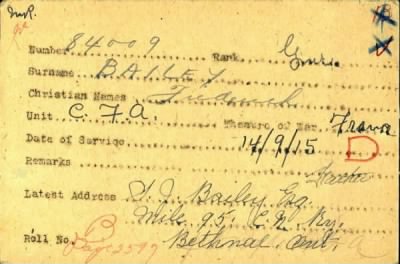 Number 84009 Rank Gnr.
Surname BAILEY
Christian Names Frederick
Unit C.F.A. Theatre of War France
Date of Service 14/9/15 D
Remarks Father
Latest Address S. J. Bailey Esq
Mile 95. C.N. Ry.
Roll No. B Page 2599 Bethnal Ont.